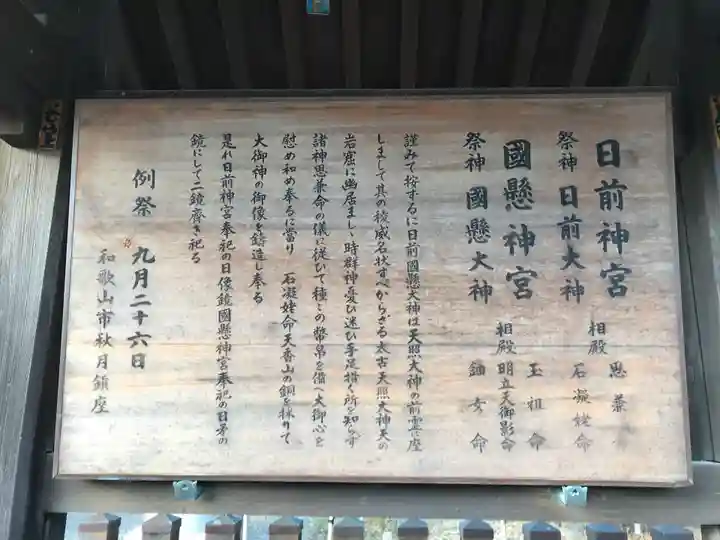 日前神宮
祭神 日前大神
相殿 思兼
石凝姥命
國懸神宮
祭神 國懸大神
玉祖命
相殿 明立天御影命
鈿女命
謹みて按ずるに日前國懸大神は天照大神の前霊に座
しまして其の稜威名状すべからざる太古天照大神天の
岩窟に幽居ましゝ時群神憂ひ迷ひ手足措く所を知らず
諸神思兼命の議に従ひて種々の幣帛を備へ大御心を
慰め和め奉るに當り 石凝姥命天香山の銅を採りて
大御神の御像を鋳造し奉る
是れ日前神宮奉祀の日像鏡國懸神宮奉祀の日矛の
鏡にして二鏡齊き祀る
例祭 九月二十六日
和歌山市秋月鎮座